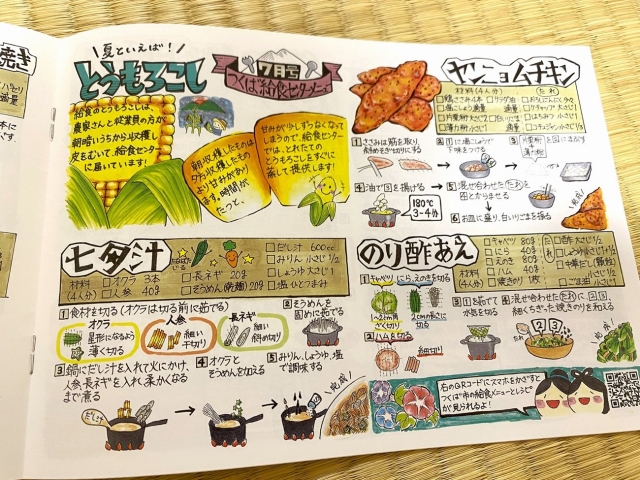 夏といえば!
とうもろこし
7月号
つくば給食センターズ
給食のとうもろこしは、
農家さんと従業員の方が
朝暗いうちから収穫し
皮をむいて給食センター
に届いています!
朝収穫したもの
の方が夕方収穫したもの
より甘みがあり
ます。時間が
たつと、
甘みが少しずつなくなって
しまうので、給食センター
では、とれたての
とうもろこしをすぐに
蒸して提供します!
ヤンニョムチキン
材料(4人分)
(たれ)
適量
適量
片栗粉 大さじ2
薄力粉 小さじ1
白いりごま
ケチャップ 大さじ1
はちみつ 小さじ1
コチュジャン 小さじ1
1 ささみは筋を取り、
斜めそぎ切りにする
2 1に塩こしょうで
下味をつける
3
片栗粉
薄力粉
を2にまぶす
4 油で3を揚げる
180℃
3~4分
5 混ぜ合わせたたれを
4とからませる
6 お皿に盛り、白いりごまを振る
完成!
七夕汁
材料
(4人分)
オクラ 3本
人参 40g
長ネギ 20g
そうめん(乾麺) 20g
だし汁 600cc
みりん 小さじ1
しょうゆ 大さじ1
塩 ひとつまみ
1 食材を切る(オクラは切る前に茹でる)
オクラ
星形になるよう
薄く切る
人参
細い
千切り
長ネギ
細い
斜め切り
2 そうめんを
固めに茹でる
3 鍋にだし汁を入れて火にかけ、
人参、長ネギを入れ柔かくなる
まで煮る
だし汁
4 オクラと
そうめんを加える
5 みりん、しょうゆ、塩
で調味する
完成!
のり酢あえ
材料
(4人分)
キャベツ 80g
にら 40g
えのき 80g
ハム 40g
焼きのり
たれ
酢 大さじ1/2
しょうゆ 小さじ1
中華だし(顆粒)
ごま油 小さじ1
1 キャベツ、にら、えのきを切る
1~2cm角
ざく切り
2cmの長さに
切る
2 ハムを切る
細切り
3 1を茹で
水気を切る
4 混ぜ合わせたたれに2、3、
細くちぎった焼きのりを和える
完成!
右のQRコードにスマホをかざすと
つくば市の給食メニューとレシピ
が見られるよ!